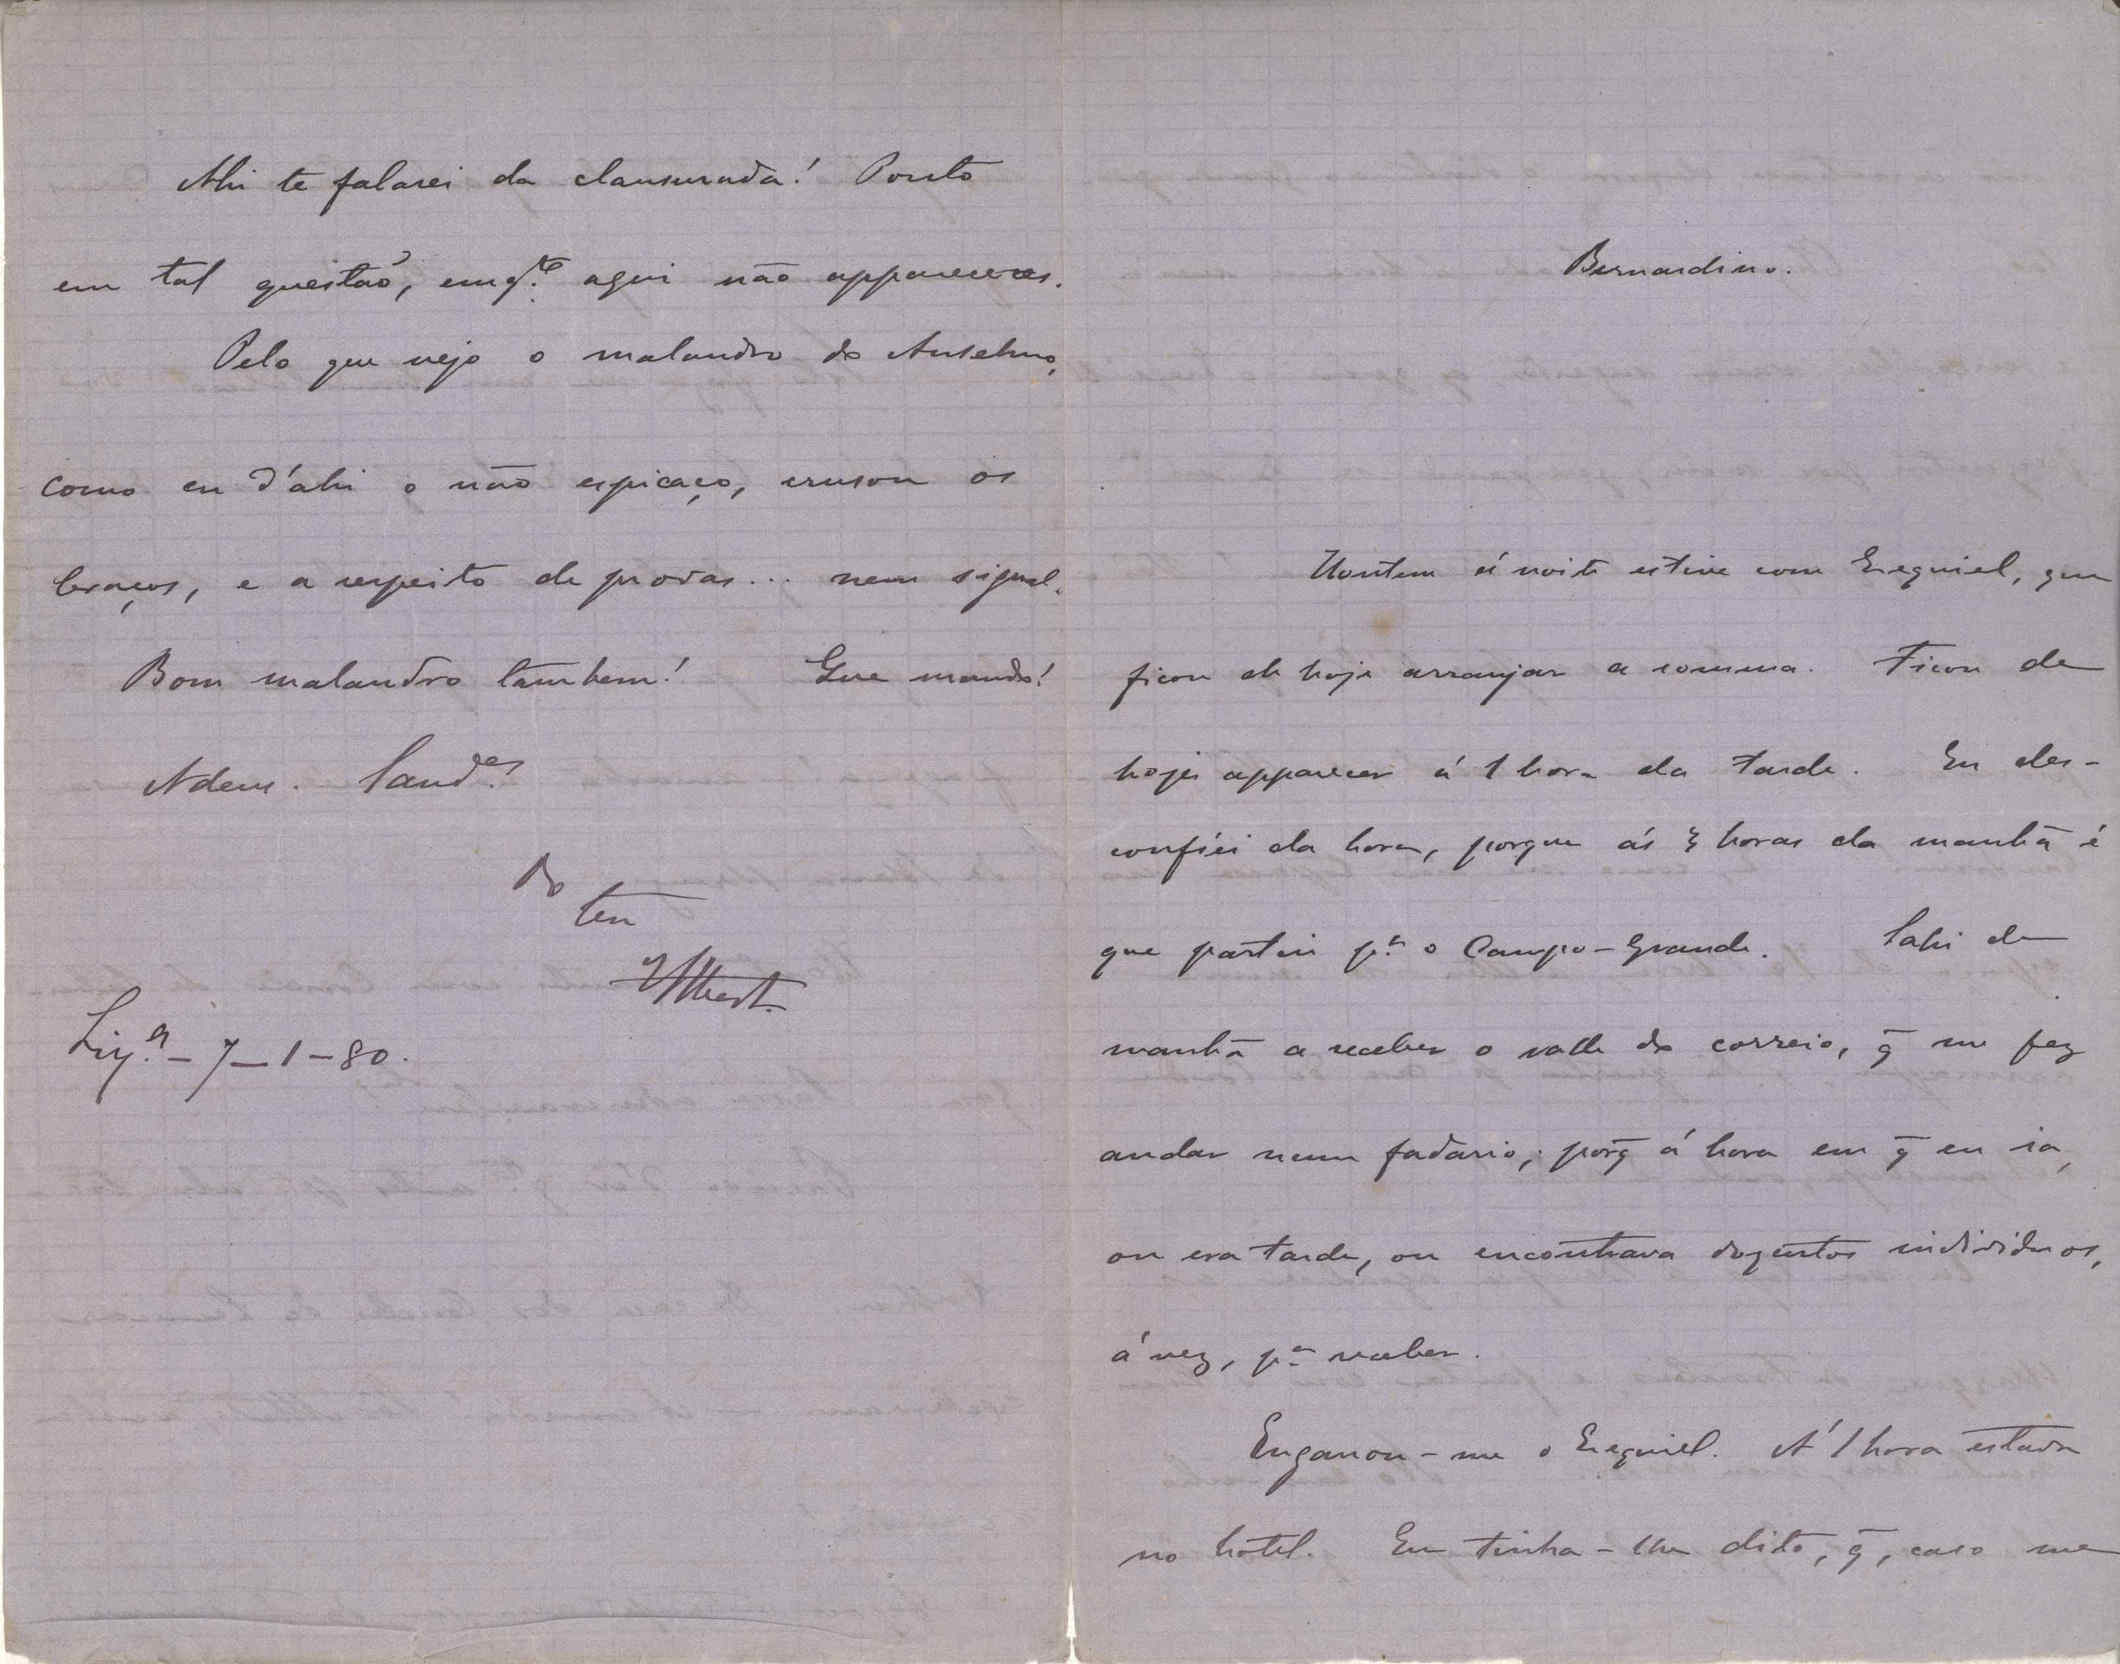 Bernardino.
Hontem á noite estive com Ezequiel, que
ficou de hoje arranjar a somma. Ficou de
hoje apparecer á 1 hora da tarde. Eu des-
confiei da hora, porque ás 3 horas da manhã é
que partiu p.ª o Campo-Grande. Sahi de
manhã a receber o valle do correio, q̃ me fez
andar num fadario; porq̃ á hora em q̃ eu ia,
ou era tarde, ou encontrava dozentos individuos,
á vez, p.ª receber.
Enganou-me o Ezequiel. Á 1 hora estava
no hotel. Eu tinha-lhe dito, q̃, caso me
Ahi te falarei da clausurada! Ponto
em tal questão, emq.to aqui não appareceres.
Pelo que vejo o malandro do Anselmo,
como eu d'ahi o não espicaço, crusou os
braços, e a respeito de provas... nem signal.
Bom malandro tambem! Que mundo!
Adeus. Saud.es
Do
teu
Lix.ª - 7 - 1 - 80.